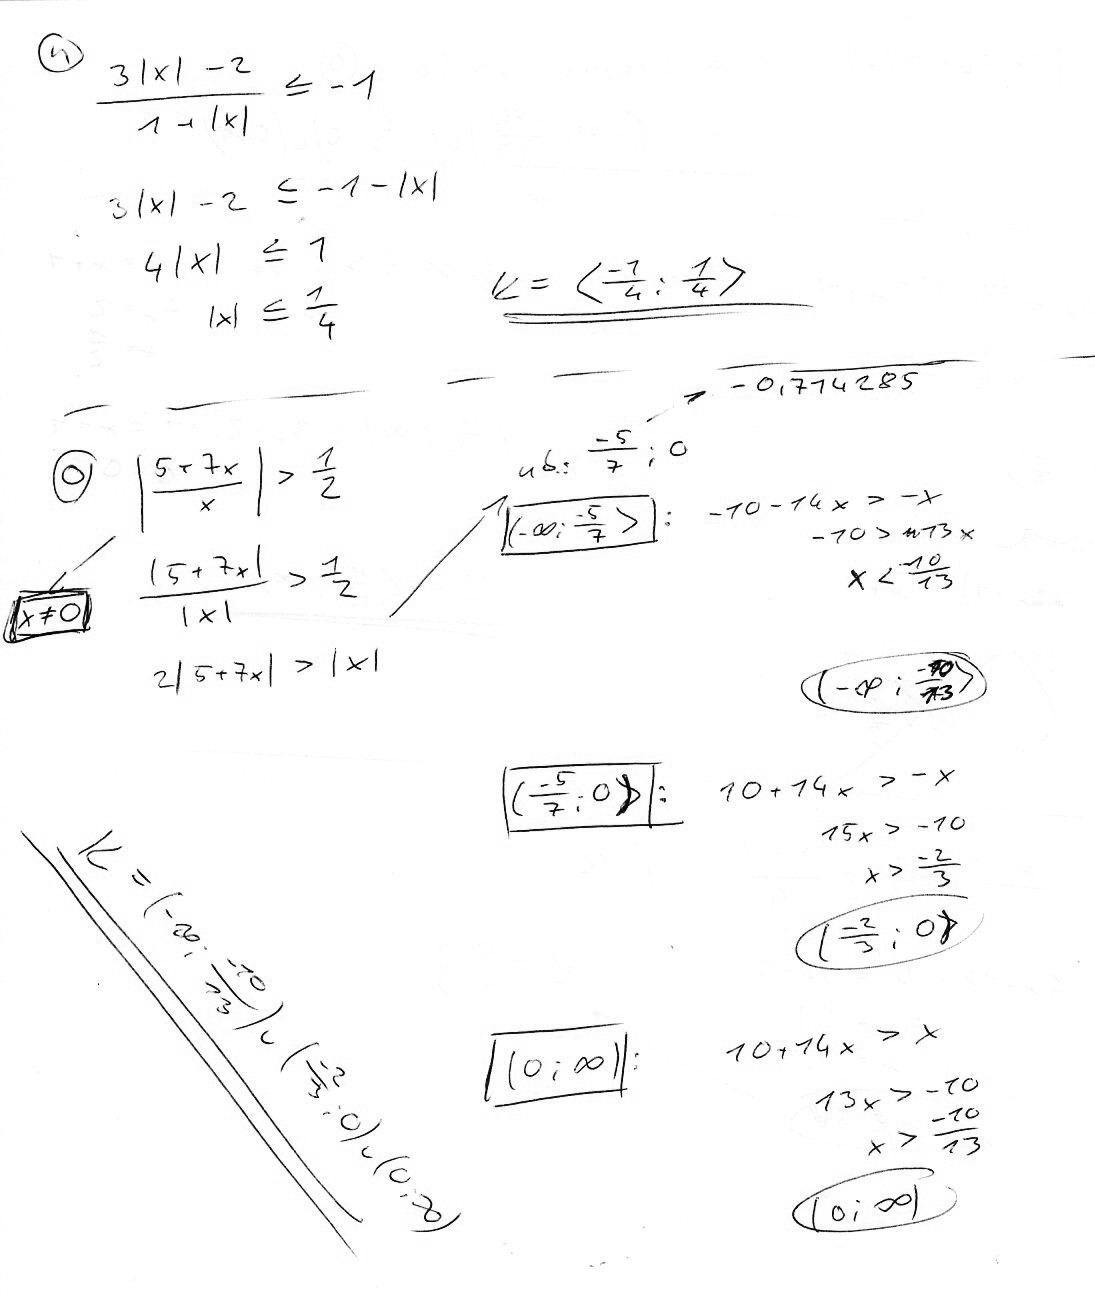 n)
3|x| - 2 / 1 + |x| ≤ -1
3|x| - 2 ≤ -1 - |x|
4|x| ≤ 1
|x| ≤ 1/4
K = ⟨-1/4; 1/4⟩
o)
|5+7x / x| > 1/2
x ≠ 0
|5+7x| / |x| > 1/2
2|5+7x| > |x|
nb.: -5/7; 0
-0,714285
(-∞; -5/7⟩:
-10 - 14x > -x
-10 > 13x
x < -10/13
(-∞; -10/13)
(-5/7; 0):
10 + 14x > -x
15x > -10
x > -2/3
(-2/3; 0)
(0; ∞):
10 + 14x > x
13x > -10
x > -10/13
(0; ∞)
K = (-∞; -10/13) ∪ (-2/3; 0) ∪ (0; ∞)